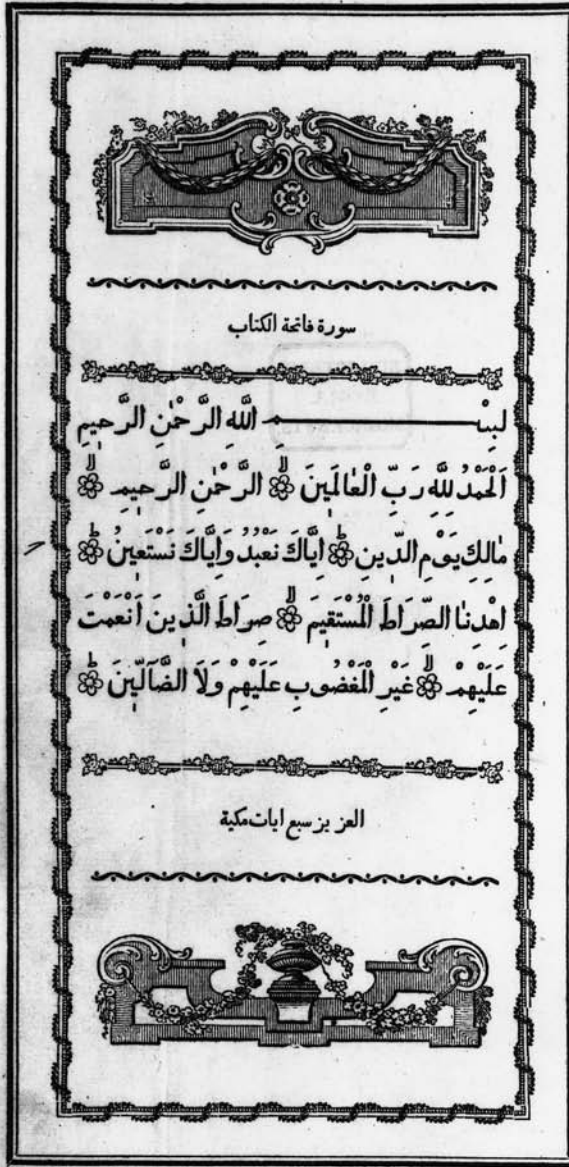 سورة فاتحة الكتاب
لبِسْمِ اللَّهِ الرَّحْمٰنِ الرَّحِيمِ
اَلْحَمْدُ لِلَّهِ رَبِّ الْعَالَمِينَ ۞ الرَّحْمٰنِ الرَّحِيمِ ۞
مَالِكِ يَوْمِ الدِّينِ ۞ اِيَّاكَ نَعْبُدُ وَاِيَّاكَ نَسْتَعِينُ ۞
اِهْدِنَا الصِّرَاطَ الْمُسْتَقِيمَ ۞ صِرَاطَ الَّذِينَ اَنْعَمْتَ
عَلَيْهِمْ ۞ غَيْرِ الْمَغْضُوبِ عَلَيْهِمْ وَلَا الضَّآلِّينَ ۞
العزيز سبع ايات مكية